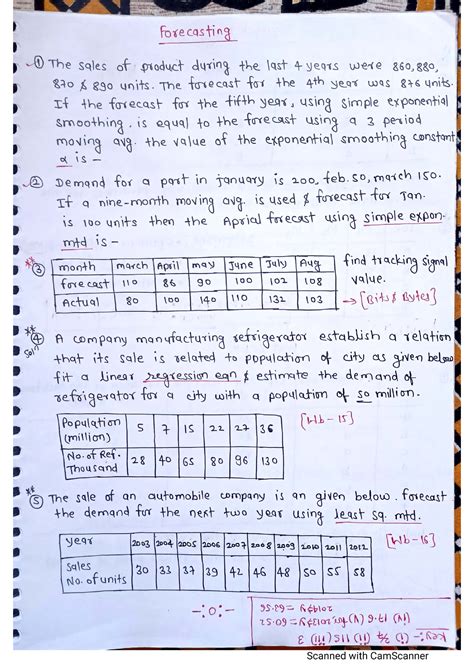 Forecasting
① The sales of product during the last 4 years were 860, 880,
870 & 890 units. The forecast for the 4th year was 876 units.
If the forecast for the fifth year, using simple exponential
smoothing. is equal to the forecast using a 3 period
moving avg. the value of the exponential smoothing constant
α is -
② Demand for a part in january is 200, feb. 50, march 150.
If a nine-month moving avg. is used & forecast for Jan.
is 100 units then the Aprial forecast using simple expon.
mtd is -
** ③ month march April may June July Aug
forecast 110 86 90 100 102 108
Actual 80 100 140 110 132 103
find tracking signal
value.
→ [Bits & Bytes]
** ④ A company manufacturing refrigerator establish a relation
Soln that its sale is related to population of city as given below
fit a linear regression eqn & estimate the demand of
refrigerator for a city with a population of 50 million.
Population (million) 5 7 15 22 27 36
No. of Ref. Thousand 28 40 65 80 96 130
[Wb - 15]
** ⑤ The sale of an automobile company is an given below. forecast
the demand for the next two year using least sq. mtd.
year 2003 2004 2005 2006 2007 2008 2009 2010 2011 2012
Sales No. of units 30 33 37 39 42 46 48 50 55 58
[Wb - 15]
-:0:-
Key:- (i) 2/7 (ii) 115 (iii) 3
(iv) 17.6 (v) for 2013 y = 60.52
2014 y = 63.56
Scanned with CamScanner